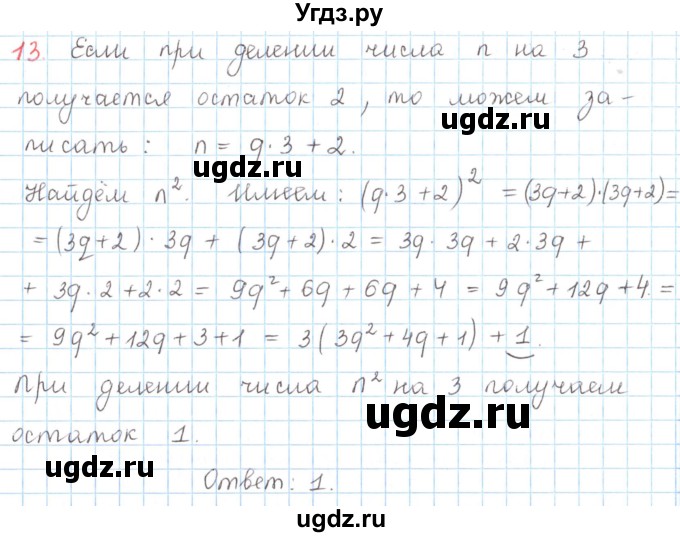 Угдз.ру
13. Если при делении числа n на 3
получается остаток 2, то можем за-
ugdz.ru
писать: n = q·3 + 2.
ugdz.ru
Найдём n². Имеем: (q·3 + 2)² = (3q+2)·(3q+2) =
= (3q+2)·3q + (3q+2)·2 = 3q·3q + 2·3q +
+ 3q·2 + 2·2 = 9q² + 6q + 6q + 4 = 9q² + 12q + 4 =
= 9q² + 12q + 3 + 1 = 3(3q² + 4q + 1) + 1.
При делении числа n² на 3 получаем
ugdz.ru
остаток 1.
ugdz.ru
Ответ: 1.
ugdz.ru